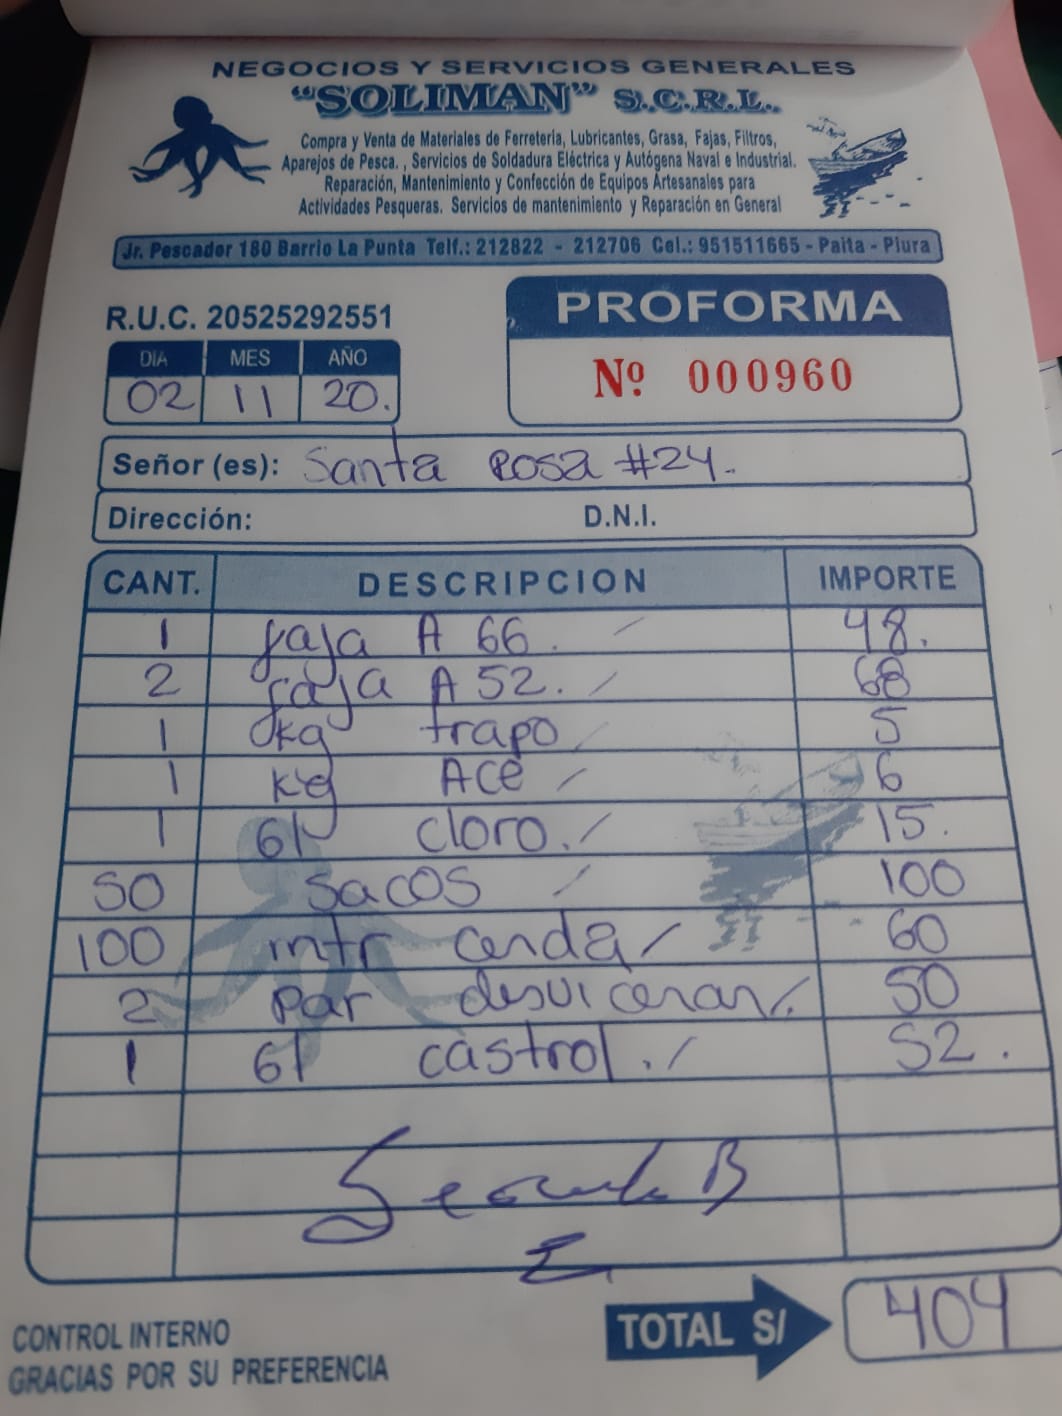 NEGOCIOS Y SERVICIOS GENERALES
"SOLIMAN" S.C.R.L.
Compra y Venta de Materiales de Ferretería, Lubricantes, Grasa, Fajas, Filtros,
Aparejos de Pesca. , Servicios de Soldadura Eléctrica y Autógena Naval e Industrial.
Reparación, Mantenimiento y Confección de Equipos Artesanales para
Actividades Pesqueras. Servicios de mantenimiento y Reparación en General
Jr. Pescador 180 Barrio La Punta Telf.: 212822 - 212706 Cel.: 951511665 - Paita - Piura
R.U.C. 20525292551
PROFORMA
Nº 000960
DIA MES AÑO
02 11 20.
Señor (es): Santa Rosa #24.
Dirección: D.N.I.
CANT. DESCRIPCION IMPORTE
1 faja A 66. 48.
2 faja A 52. 68
1 kg trapo 5
1 kg Ace 6
1 Gl cloro. 15.
50 sacos 100
100 mtr 60
2 par 50
1 Gl castrol. 52.
TOTAL S/ 404
CONTROL INTERNO
GRACIAS POR SU PREFERENCIA